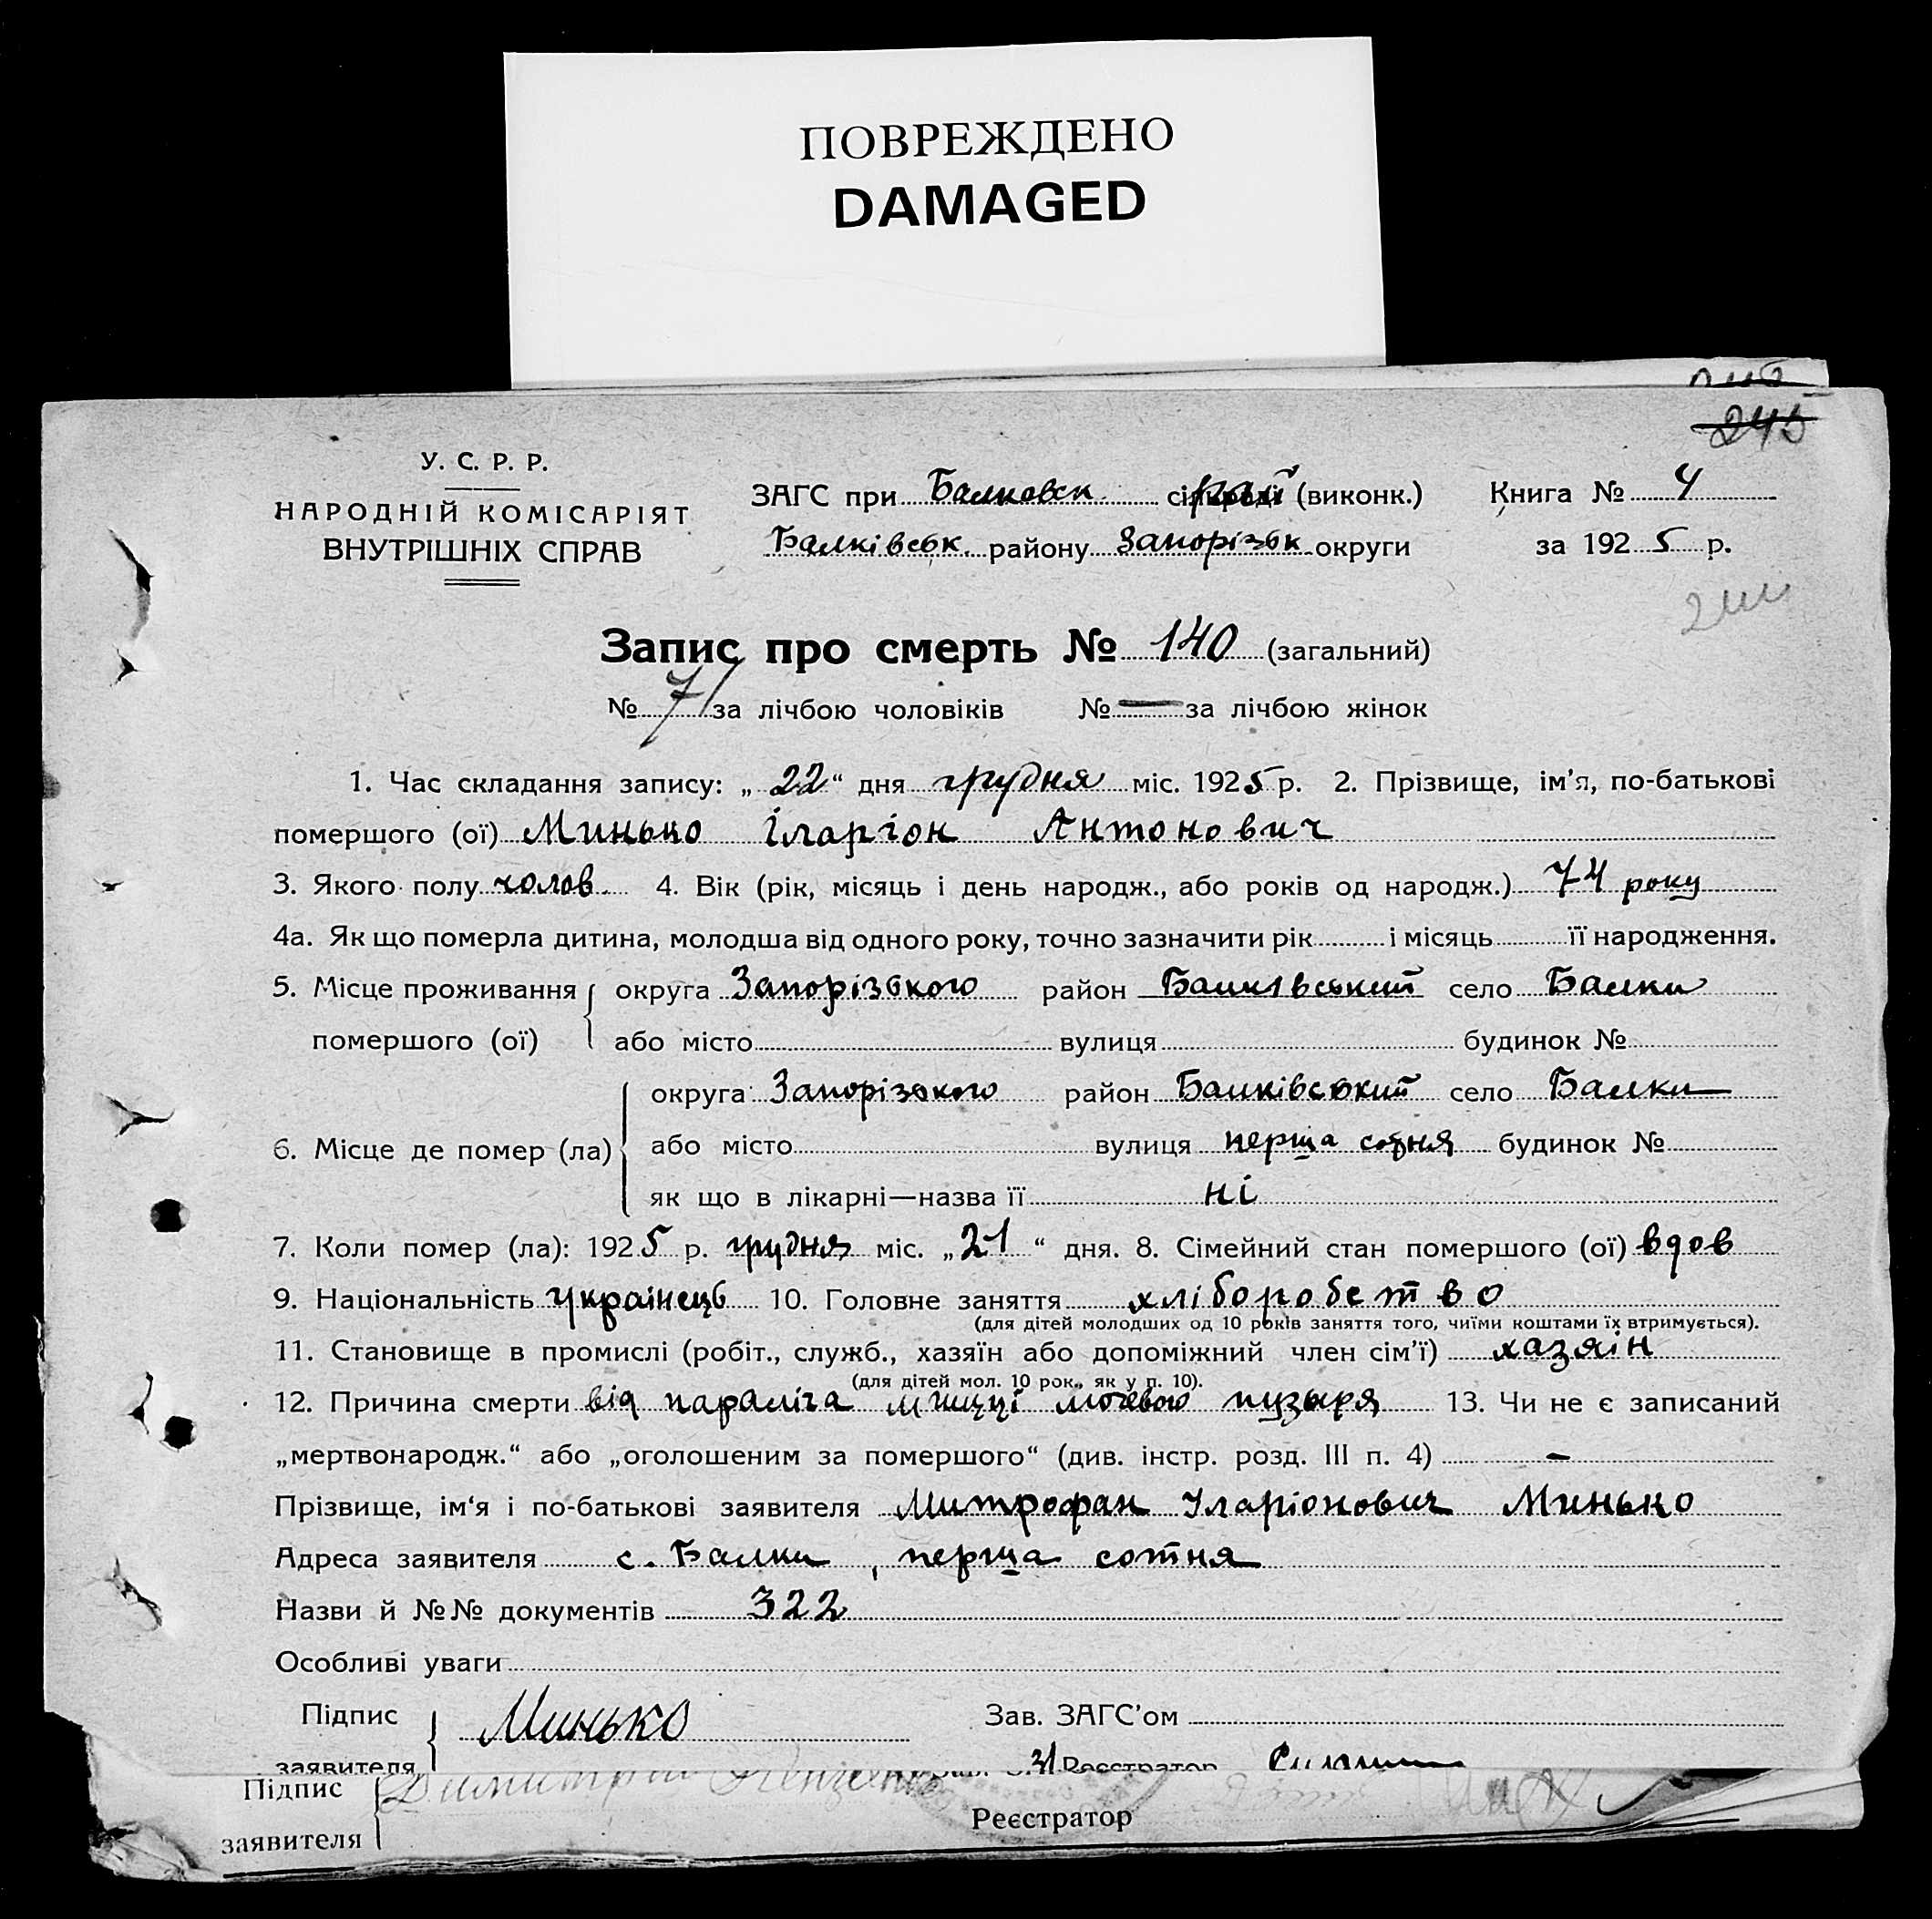 ПОВРЕЖДЕНО
DAMAGED
245
У. С. Р. Р.
НАРОДНІЙ КОМІСАРІЯТ
ВНУТРІШНІХ СПРАВ
ЗАГС при Балковск рай (виконк.)
Балківськ. району Запорізьк округи
Книга № 4
за 1925 р.
244
Запис про смерть № 140 (загальний)
№ 71 за лічбою чоловіків № — за лічбою жінок
1. Час складання запису: „22“ дня грудня міс. 1925 р. 2. Прізвище, ім’я, по-батькові
помершого (ої) Минько Іларіон Антонович
3. Якого полу чолов. 4. Вік (рік, місяць і день народж., або років од народж.) 74 року
4а. Як що померла дитина, молодша від одного року, точно зазначити рік і місяць її народження.
5. Місце проживання помершого (ої) округа Запорізького район Балківський село Балки
або місто вулиця будинок №
6. Місце де помер (ла) округа Запорізького район Балківський село Балки
або місто вулиця перша сотня будинок №
як що в лікарні—назва її ні
7. Коли помер (ла): 1925 р. грудня міс. „21“ дня. 8. Сімейний стан помершого (ої) вдов
9. Національність українець 10. Головне заняття хліборобство
(для дітей молодших од 10 років заняття того, чиїми коштами їх втримується).
11. Становище в промислі (робіт., служб., хазяїн або допоміжний член сім’ї) хазяін
(для дітей мол. 10 рок., як у п. 10).
12. Причина смерти від параліча мишці мочевого пузыря 13. Чи не є записаний
„мертвонародж.“ або „оголошеним за помершого“ (див. інстр. розд. III п. 4) —
Прізвище, ім‘я і по-батькові заявителя Митрофан Іларіонович Минько
Адреса заявителя с. Балки, перша сотня
Назви й №№ документів 322
Особливі уваги
Підпис Минько Зав. ЗАГС’ом
заявителя Реєстратор
Підпис
Реєстратор
заявителя